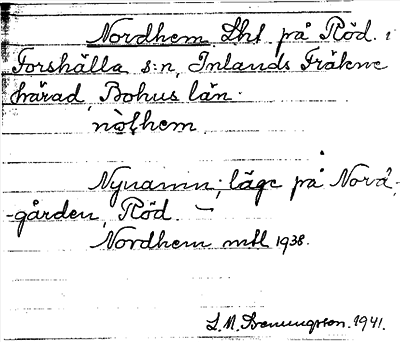 Nordhem Lht på Röd i
Forshälla s:n, Inlands Fräkne
härad, Bohus län.
nolhem
Nynamn; läge på Nord-
-gården, Röd. —
Nordhem mtl 1938.
L. M. 1941.